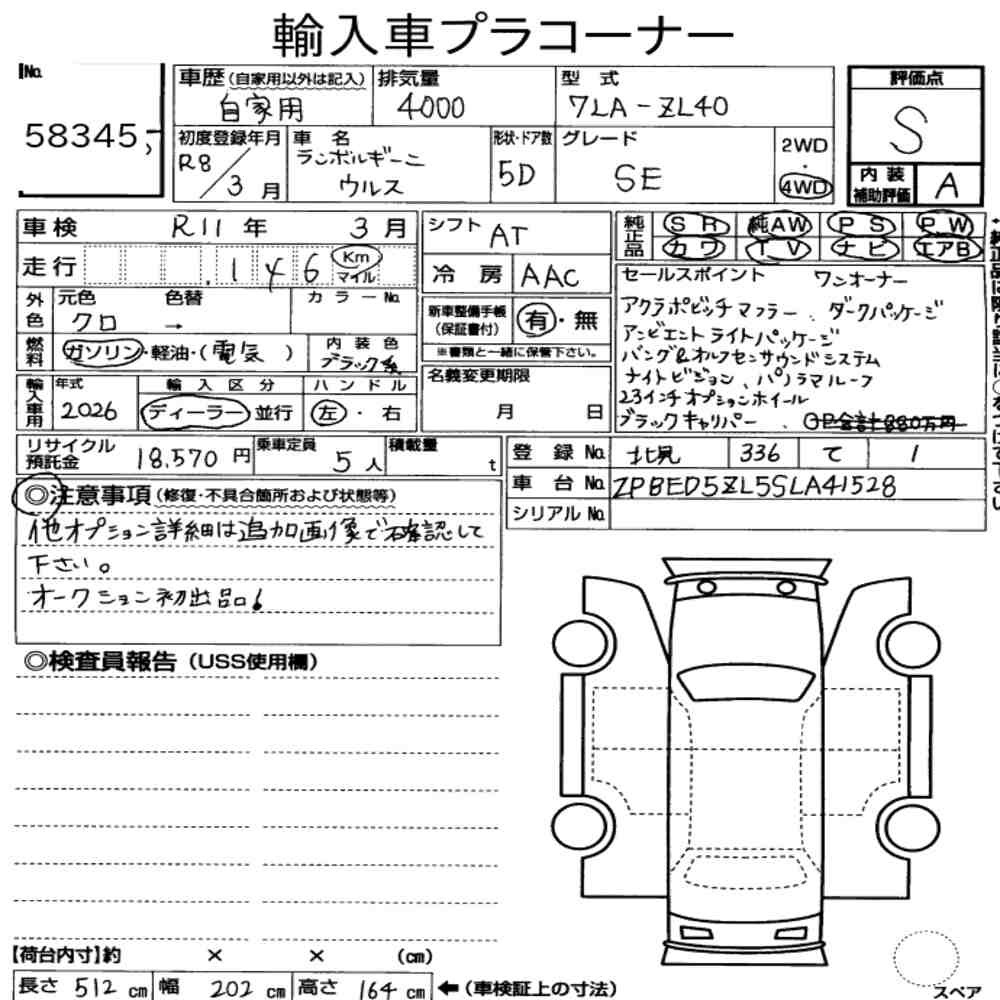 輸入車プラコーナー
No. 58345
車歴(自家用以外は記入) 自家用
排気量 4000
型式 7LA-ZL40
評価点 S
初度登録年月 R8/3月
車名 ランボルギーニ ウルス
形状・ドア数 5D
グレード SE
2WD・4WD
内装補助評価 A
車検 R11年 3月
シフト AT
純正品 SR 純AW PS PW
カワ TV ナビ エアB
走行 146 Km マイル
冷房 AAC
セールスポイント ワンオーナー
アクラポビッチマフラー、ダークパッケージ
アンビエントライトパッケージ
バング&オルフセンサウンドシステム
ナイトビジョン、パノラマルーフ
23インチオプションホイール
ブラックキャリパー、OP合計880万円
外色 元色 クロ 色替 → カラーNo.
新車整備手帳(保証書付) 有・無
※書類と一緒に保管下さい。
燃料 ガソリン・軽油・(電気)
内装色 ブラック系
名義変更期限 月 日
輸入車用 年式 2026
輸入区分 ディーラー 並行
ハンドル 左・右
リサイクル預託金 18,570円
乗車定員 5人
積載量 t
登録No. 北見 336 て 1
車台No. ZPBED5ZL5SLA41528
シリアルNo.
◎注意事項(修復・不具合箇所および状態等)
他オプション詳細は追加画像で確認して
下さい。
オークション初出品!
◎検査員報告(USS使用欄)
【荷台内寸】約 × × (cm)
長さ 512cm 幅 202cm 高さ 164cm ←(車検証上の寸法)
スペア